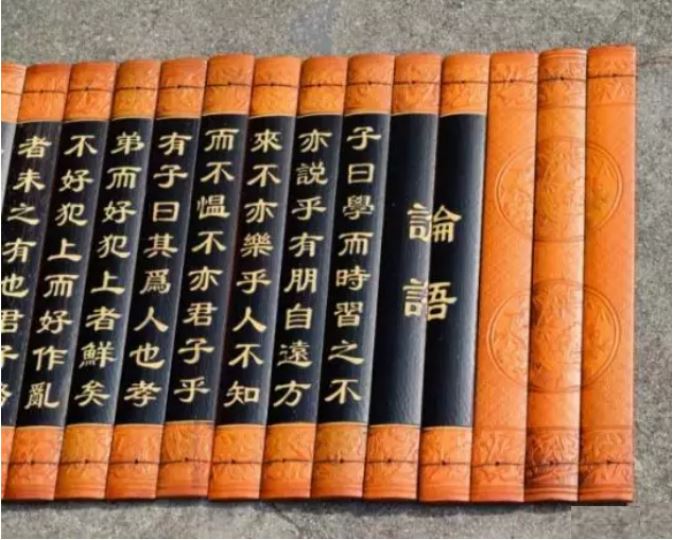 論語
子曰學而時習之不
亦説乎有朋自遠方
來不亦樂乎人不知
而不愠不亦君子乎
有子曰其爲人也孝
弟而好犯上者鮮矣
不好犯上而好作亂
者未之有也君子